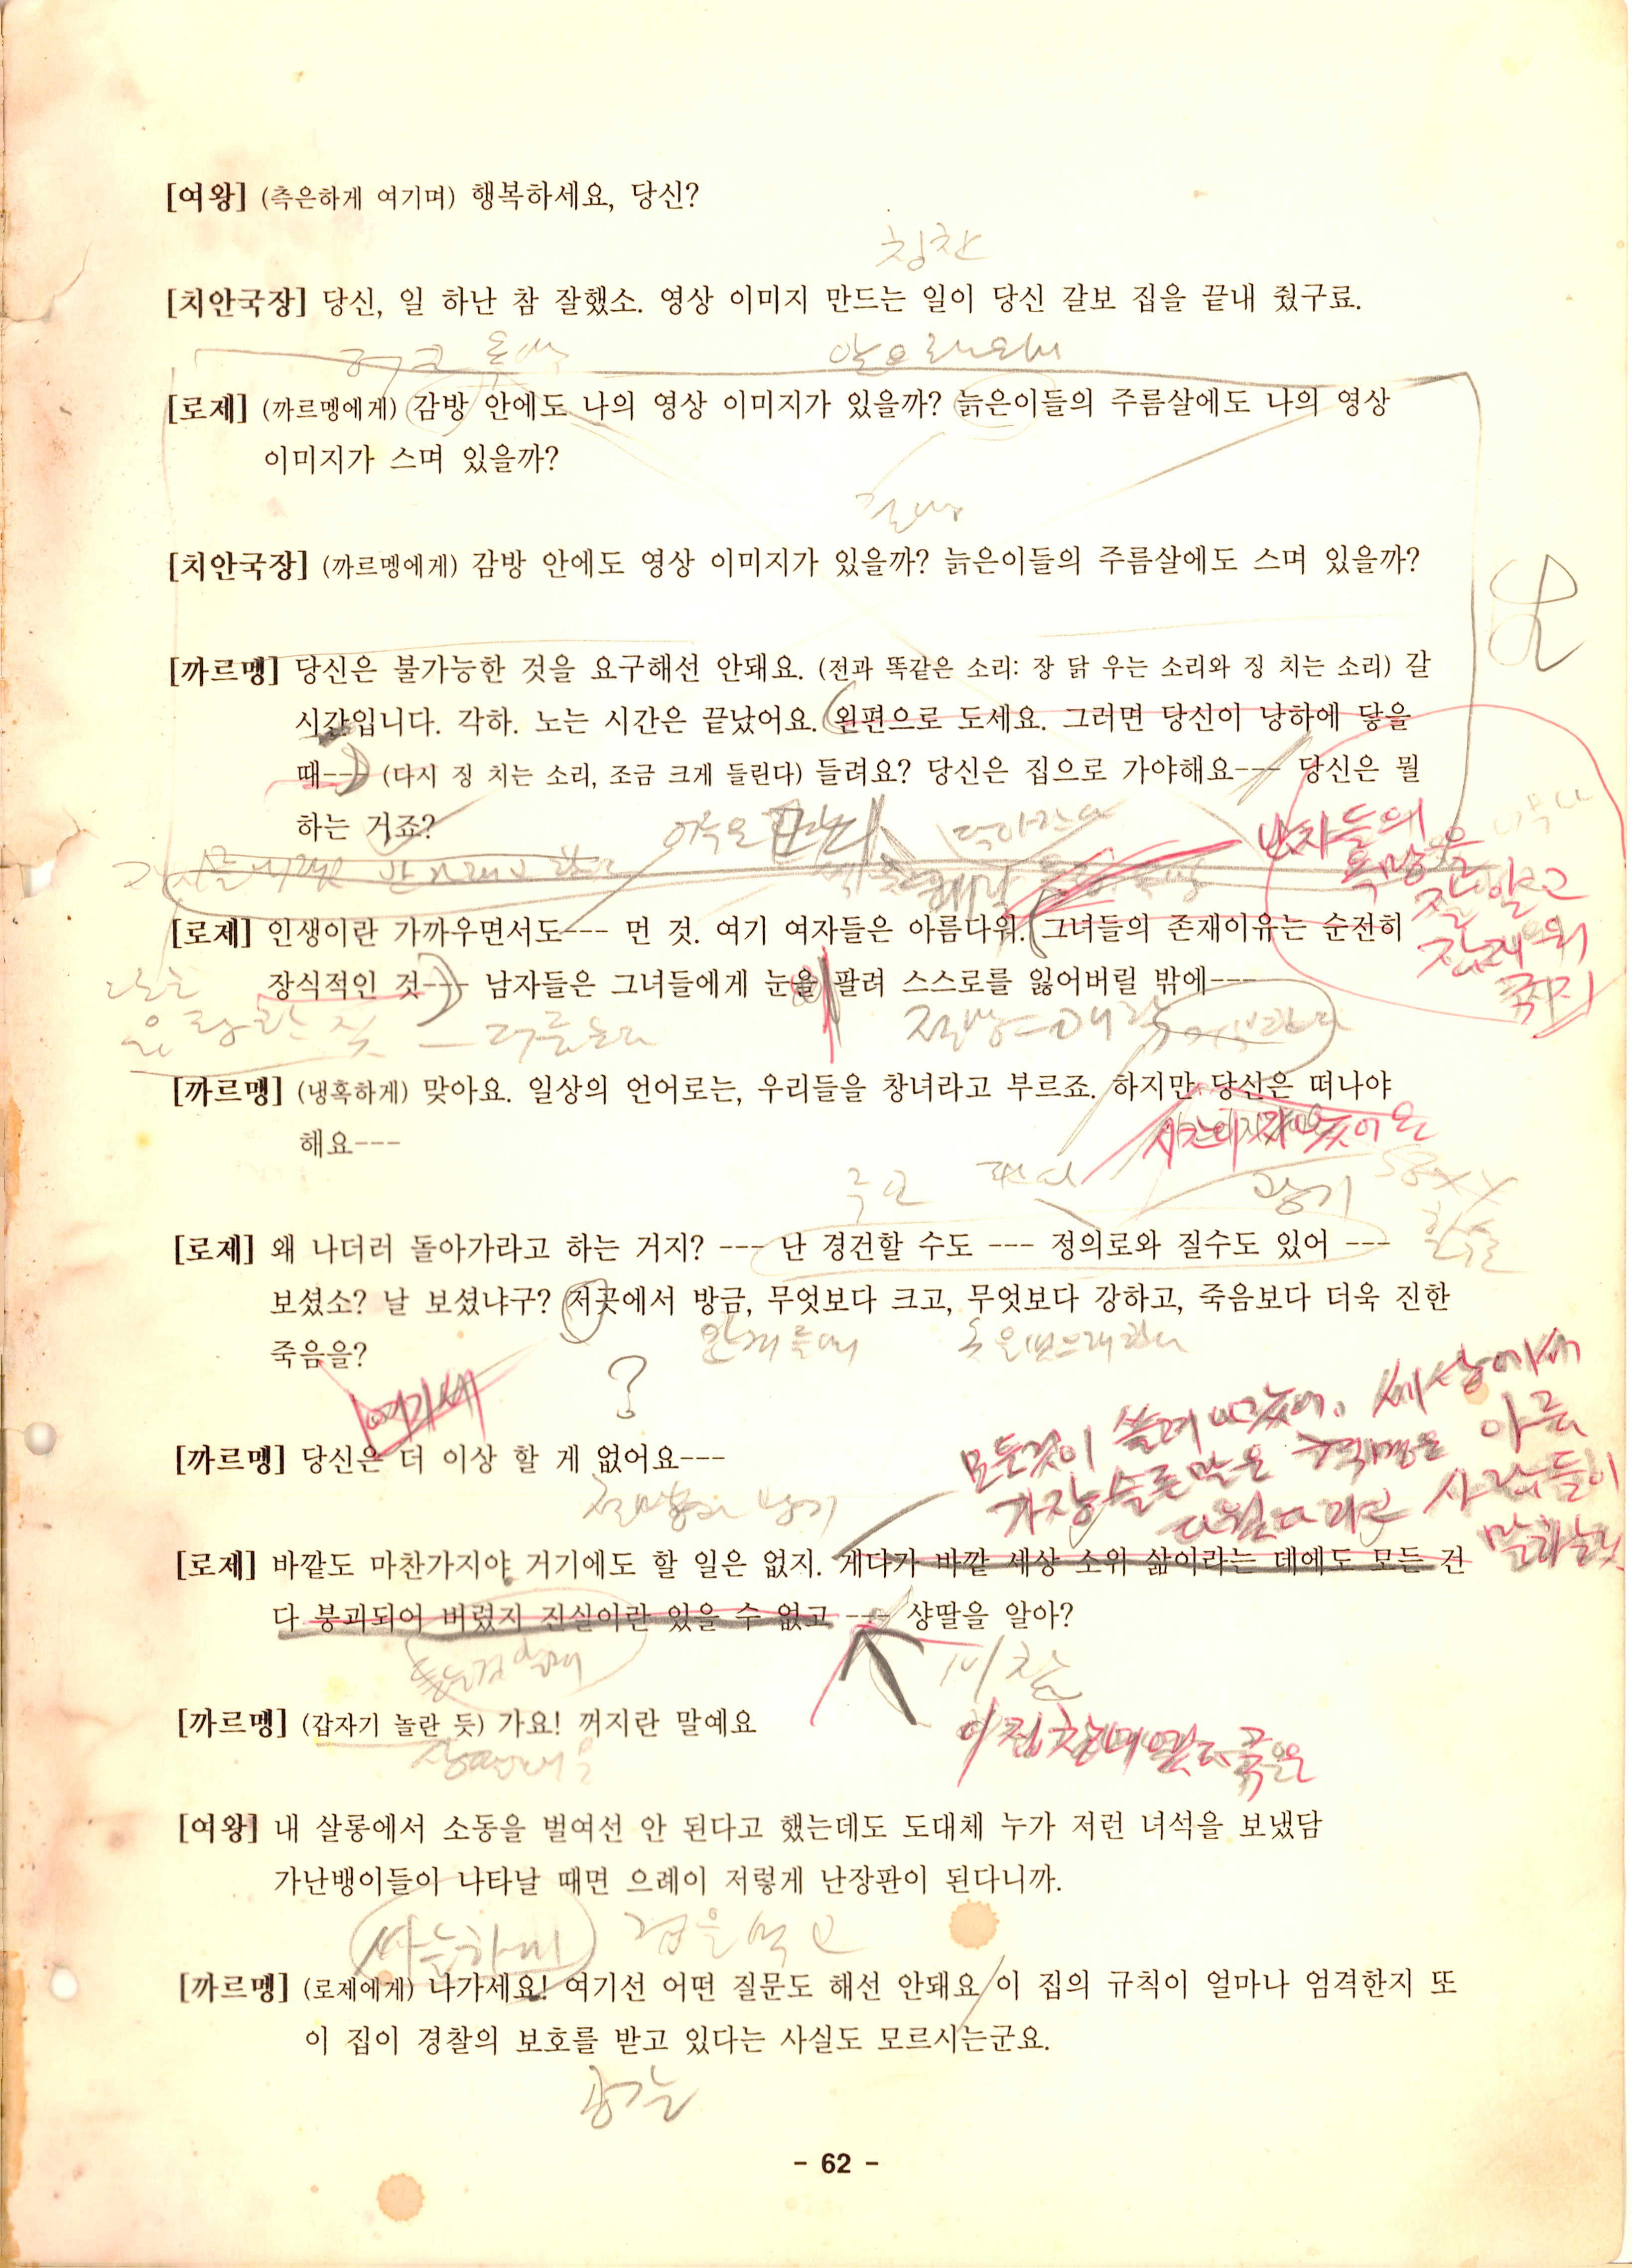 [여왕] (측은하게 여기며) 행복하세요, 당신?
칭찬
[치안국장] 당신, 일 하난 참 잘했소. 영상 이미지 만드는 일이 당신 갈보 집을 끝내 줬구료.
[로제] (까르멩에게) 감방 안에도 나의 영상 이미지가 있을까? 늙은이들의 주름살에도 나의 영상
이미지가 스며 있을까?
절망
[치안국장] (까르멩에게) 감방 안에도 영상 이미지가 있을까? 늙은이들의 주름살에도 스며 있을까?
[까르멩] 당신은 불가능한 것을 요구해선 안돼요. (전과 똑같은 소리: 장 닭 우는 소리와 징 치는 소리) 갈
시간입니다. 각하. 노는 시간은 끝났어요. 왼편으로 도세요. 그러면 당신이 낭하에 닿을
때--- (다시 징 치는 소리, 조금 크게 들린다) 들려요? 당신은 집으로 가야해요--- 당신은 뭘
하는 거죠?
남자들의
욕망을
잘 알고
[로제] 인생이란 가까우면서도--- 먼 것. 여기 여자들은 아름다워. 그녀들의 존재이유는 순전히
장식적인 것--- 남자들은 그녀들에게 눈을 팔려 스스로를 잃어버릴 밖에---
[까르멩] (냉혹하게) 맞아요. 일상의 언어로는, 우리들을 창녀라고 부르죠. 하지만 당신은 떠나야
해요---
광기
[로제] 왜 나더러 돌아가라고 하는 거지? --- 난 경건할 수도 --- 정의로와 질수도 있어 ---
보셨소? 날 보셨냐구? 저곳에서 방금, 무엇보다 크고, 무엇보다 강하고, 죽음보다 더욱 진한
죽음을?
여기서
?
[까르멩] 당신은 더 이상 할 게 없어요---
모든것이 쓸려 나갔어. 세상에서
가장 슬픈 말은 혁명은 아름
다웠다 라고 사람들이
말하는것
[로제] 바깥도 마찬가지야 거기에도 할 일은 없지. 게다가 바깥 세상 소위 삶이라는 데에도 모든 건
다 붕괴되어 버렸지 진실이란 있을 수 없고 --- 샹딸을 알아?
비참
[까르멩] (갑자기 놀란 듯) 가요! 꺼지란 말예요
이집 창녀였다 죽은
[여왕] 내 살롱에서 소동을 벌여선 안 된다고 했는데도 도대체 누가 저런 녀석을 보냈담
가난뱅이들이 나타날 때면 으례이 저렇게 난장판이 된다니까.
싸늘하며 겁을 먹고
[까르멩] (로제에게) 나가세요! 여기선 어떤 질문도 해선 안돼요 이 집의 규칙이 얼마나 엄격한지 또
이 집이 경찰의 보호를 받고 있다는 사실도 모르시는군요.
- 62 -